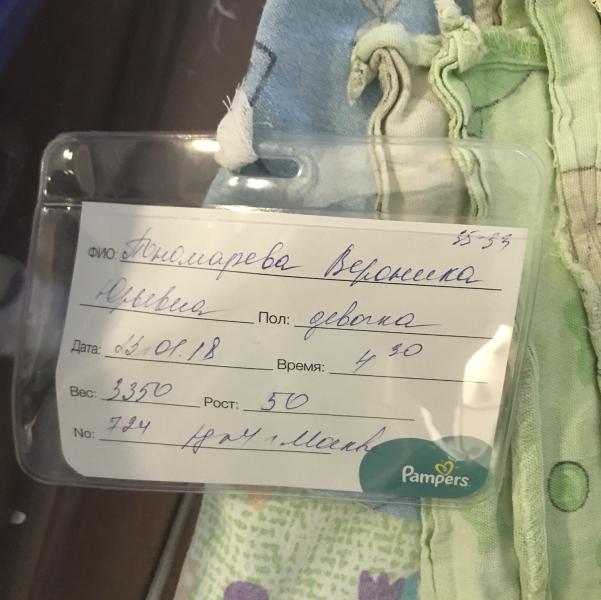 35-33
ФИО: Пономарева Вероника
Юрьевна Пол: девочка
Дата: 23.01.18 Время: 4 30
Вес: 3350 Рост: 50
No: 724 г. Москв
Pampers